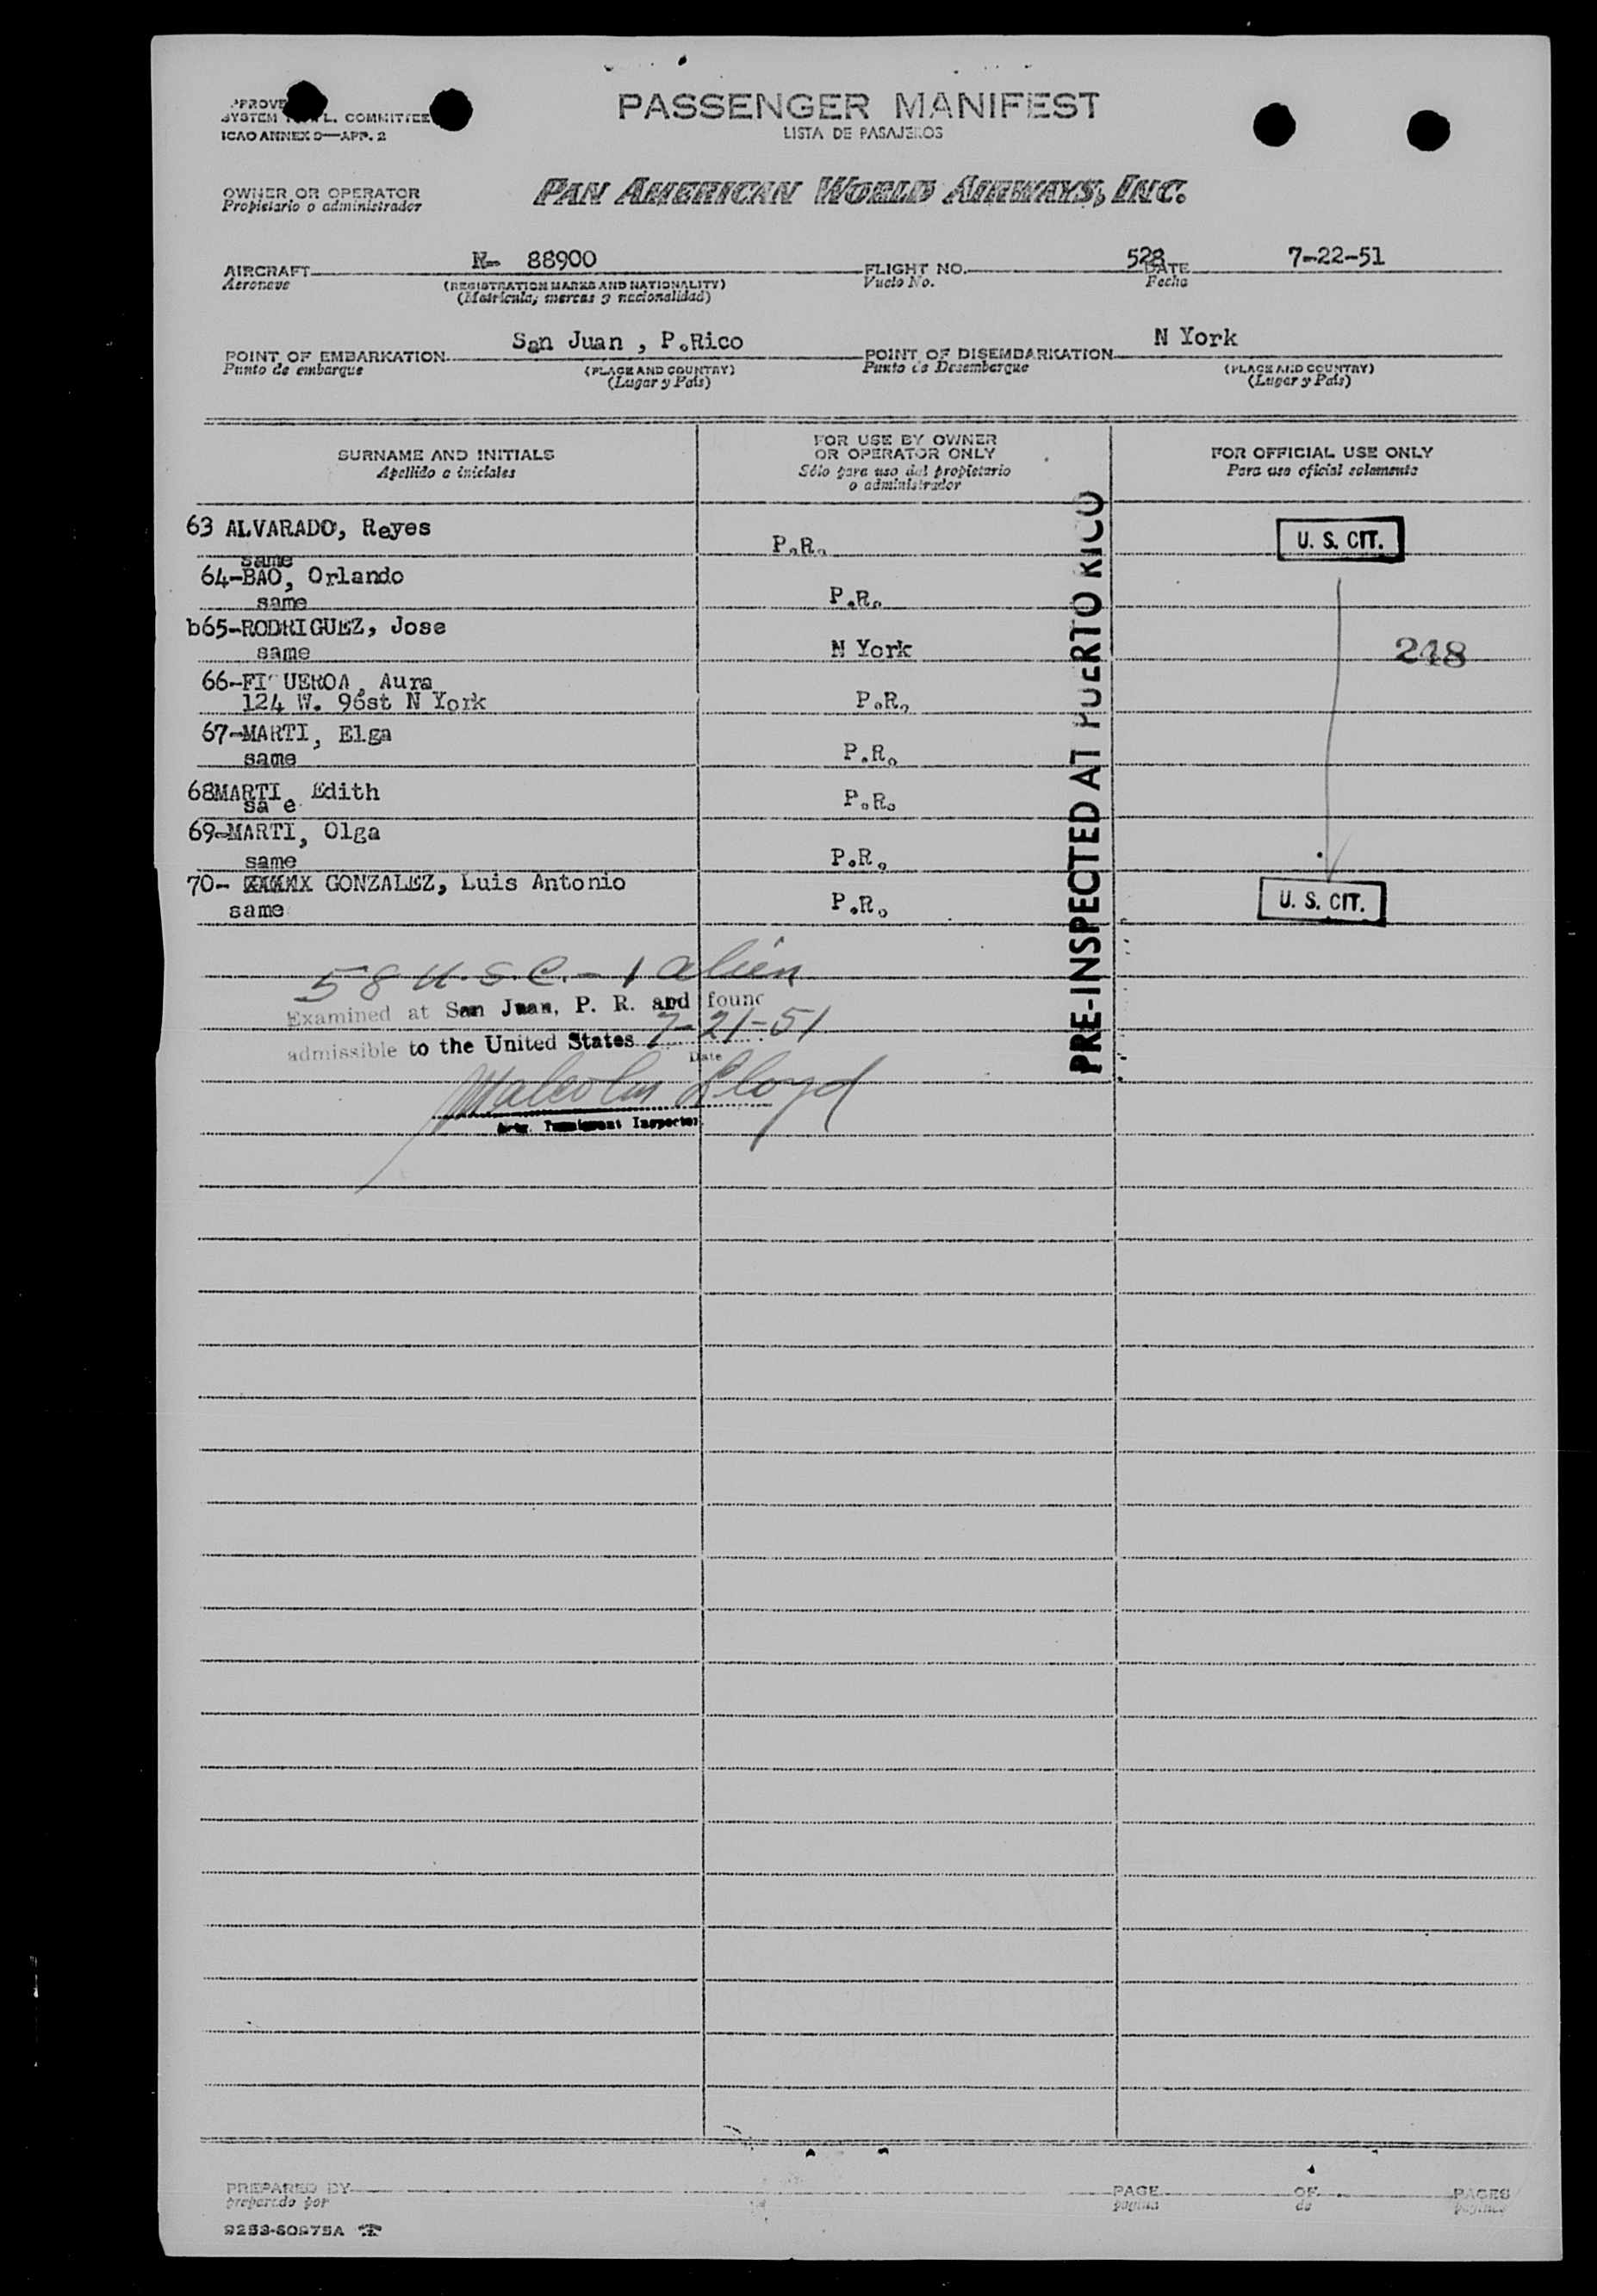 PASSENGER MANIFEST
LISTA DE PASAJEROS
SYSTEM L. COMMITTEE
ICAO ANNEX 9—APP. 2
OWNER OR OPERATOR
Propietario o administrador
PAN AMERICAN WORLD AIRWAYS, INC.
AIRCRAFT N- 88900 FLIGHT NO. 528 DATE 7-22-51
Aeronave (REGISTRATION MARKS AND NATIONALITY) Vuelo No. Fecha
(Matricula, marcas y nacionalidad)
POINT OF EMBARKATION San Juan , P.Rico POINT OF DISEMBARKATION N York
Punto de embarque (PLACE AND COUNTRY) Punto de Desembarque (PLACE AND COUNTRY)
(Lugar y País) (Lugar y País)
SURNAME AND INITIALS
Apellido e iniciales
FOR USE BY OWNER
OR OPERATOR ONLY
Sólo para uso del propietario
o administrador
FOR OFFICIAL USE ONLY
Para uso oficial solamente
63 ALVARADO, Reyes P.R. U. S. CIT.
same
64-BAO, Orlando P.R.
same
b65-RODRIGUEZ, Jose N York 248
same
66-FI UEROA, Aura P.R.
124 W. 96st N York
67-MARTI, Elga P.R.
same
68MARTI, Edith P.R.
sa e
69-MARTI, Olga P.R.
same
70- GONZALEZ, Luis Antonio P.R. U. S. CIT.
same
PRE-INSPECTED AT PUERTO RICO
58 U.S.C. - 1 alien
Examined at San Juan, P. R. and found
admissible to the United States 7-21-51
Date
Malcolm Lloyd
Immigrant Inspector
PREPARED BY PAGE OF PAGES
preparado por página de páginas